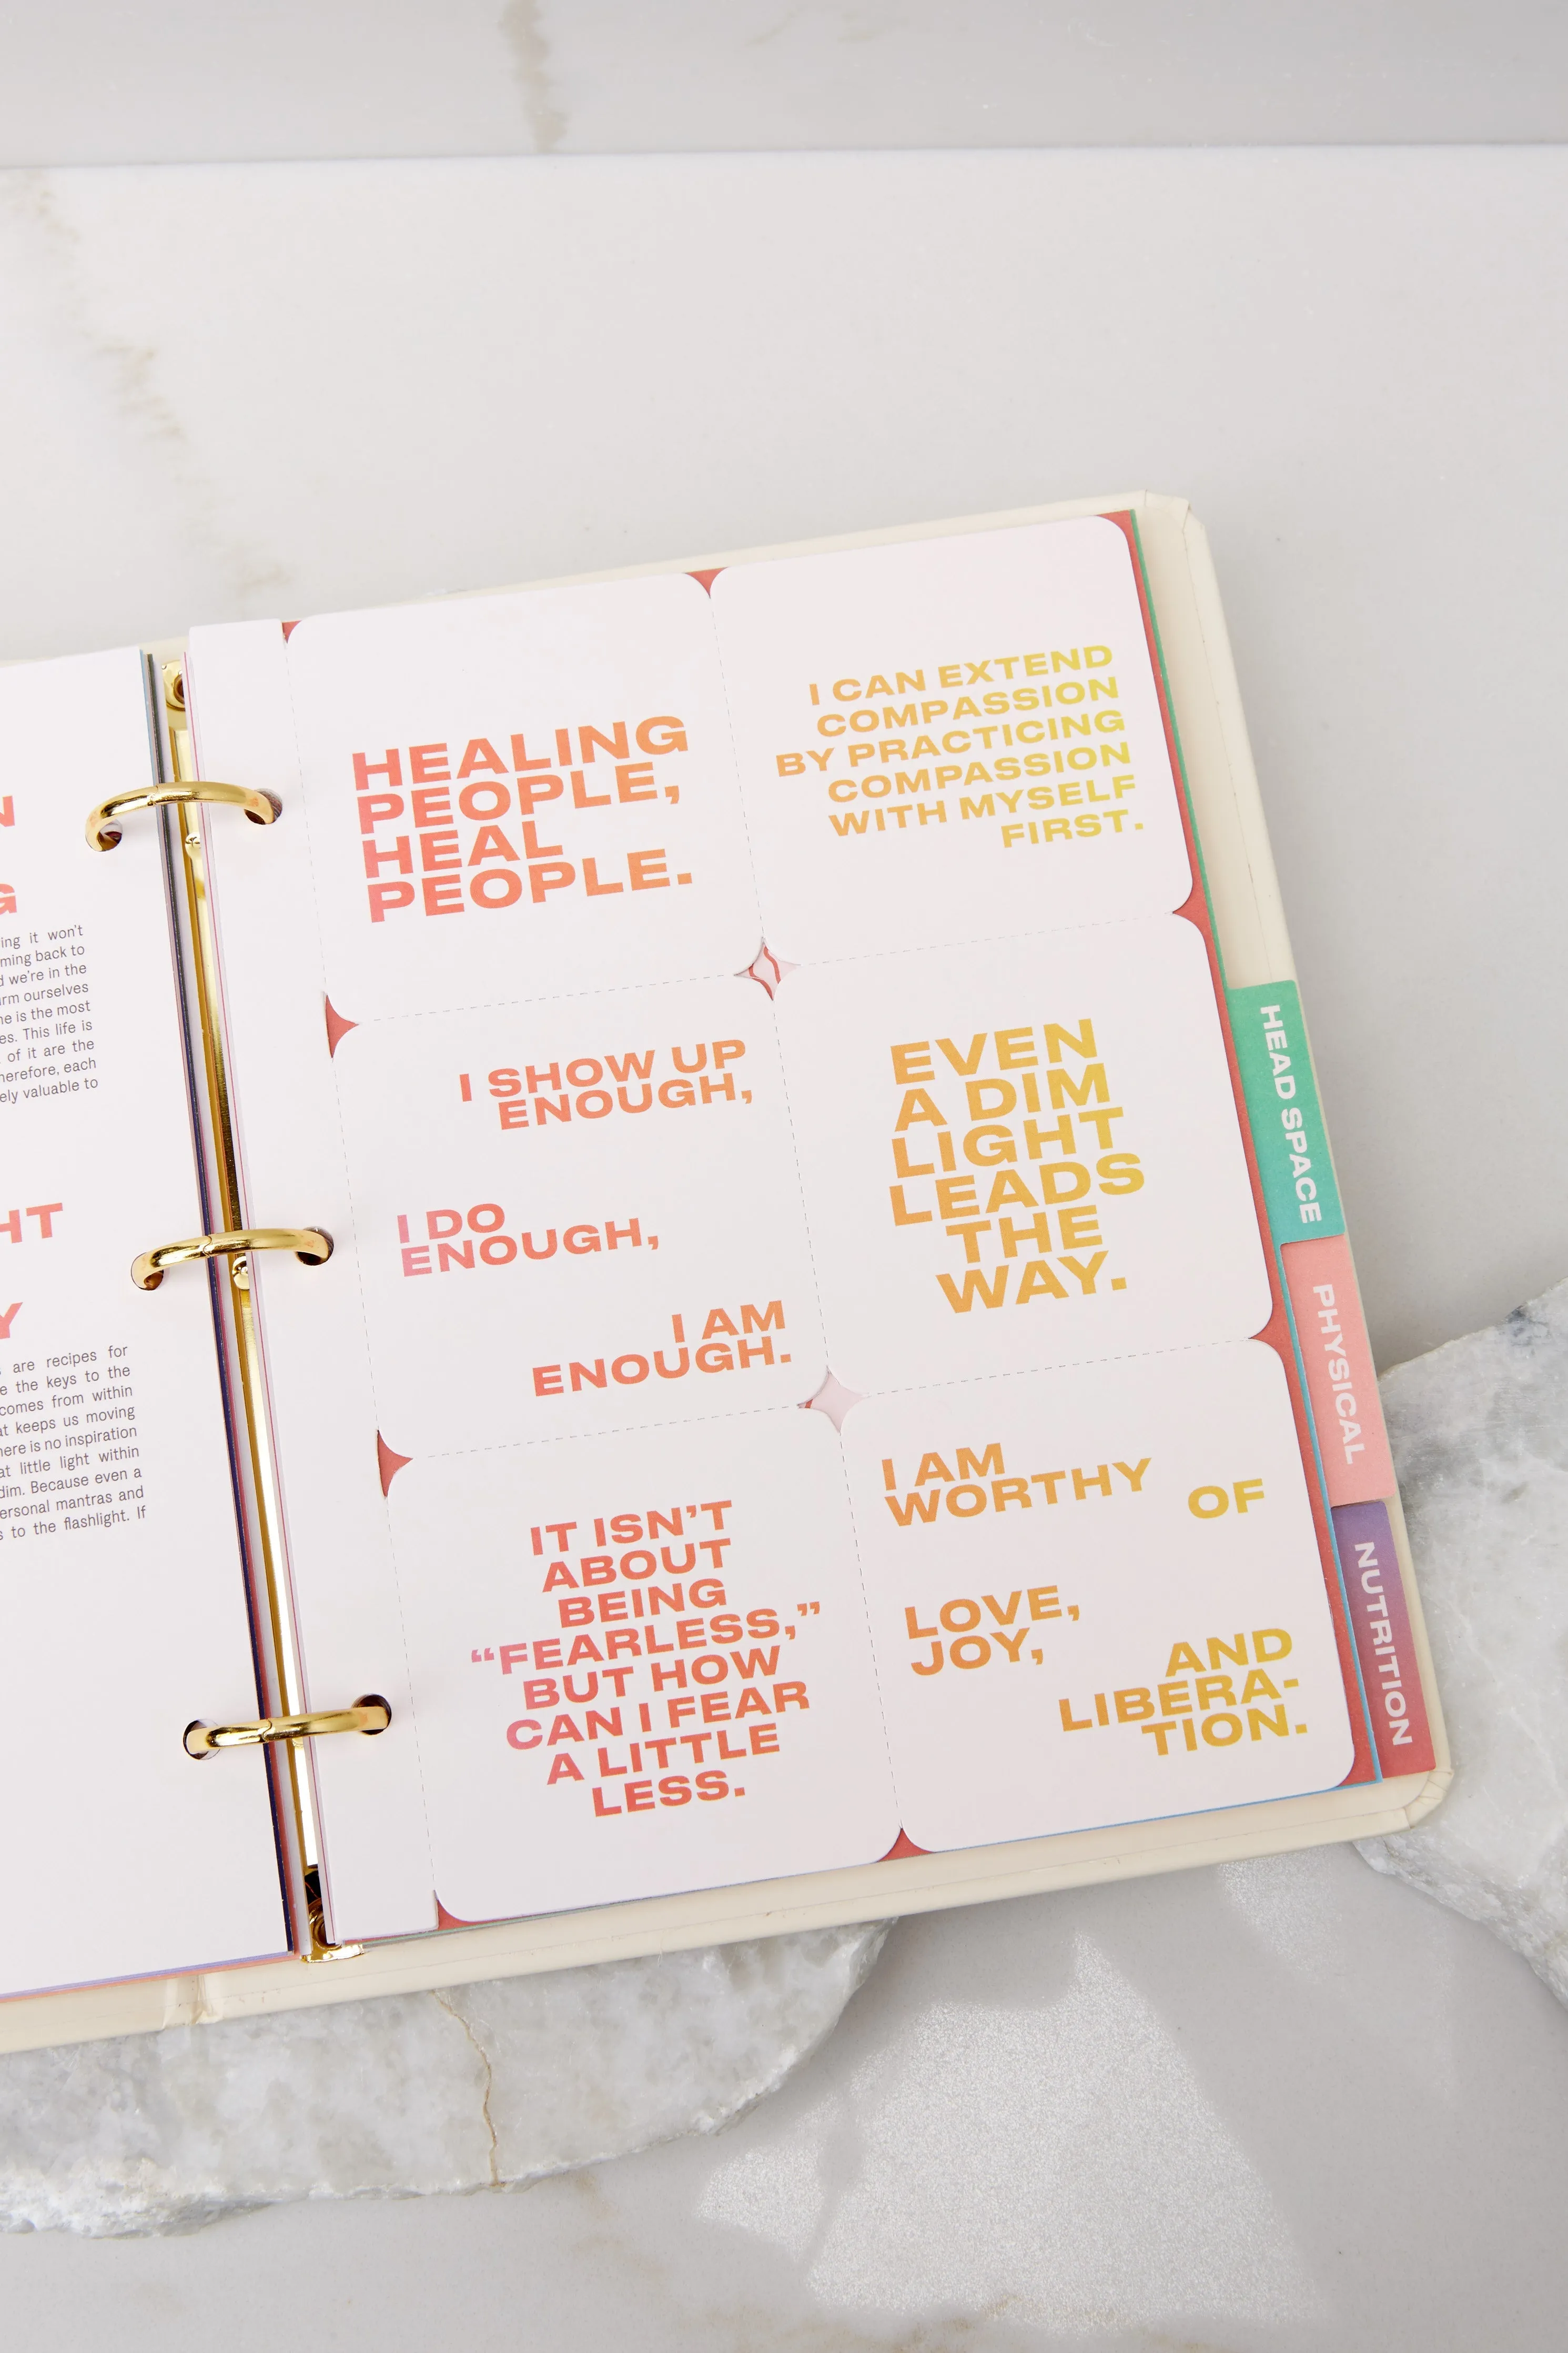 N
G
ing it won't
ming back to
d we're in the
rm ourselves
ne is the most
es. This life is
of it are the
herefore, each
ely valuable to
HT
Y
are recipes for
e the keys to the
comes from within
at keeps us moving
here is no inspiration
at little light within
dim. Because even a
ersonal mantras and
s to the flashlight. If
HEALING
PEOPLE,
HEAL
PEOPLE.
I CAN EXTEND
COMPASSION
BY PRACTICING
COMPASSION
WITH MYSELF
FIRST.
I SHOW UP
ENOUGH,
I DO
ENOUGH,
I AM
ENOUGH.
EVEN
A DIM
LIGHT
LEADS
THE
WAY.
IT ISN'T
ABOUT
BEING
“FEARLESS,”
BUT HOW
CAN I FEAR
A LITTLE
LESS.
I AM
WORTHY OF
LOVE,
JOY,
AND
LIBERA-
TION.
HEAD SPACE
PHYSICAL
NUTRITION